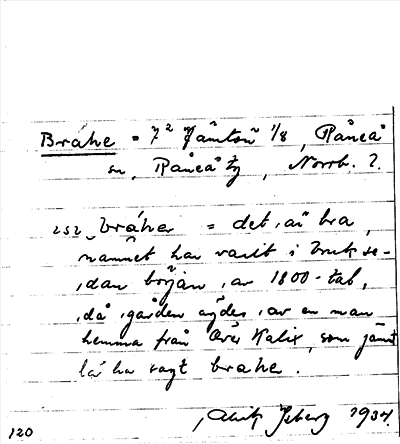 Bráhe = 7² Jämtön 1/8, Råneå
sn, Råneå tg, Norrb. l.
252 bráhe = det är bra,
namnet har varit i bruk se-
dan början av 1800-tal,
då gården ägdes av en man
hemma från Över Kalix, som jämt
lä ha sagt brahe.
1934.
120